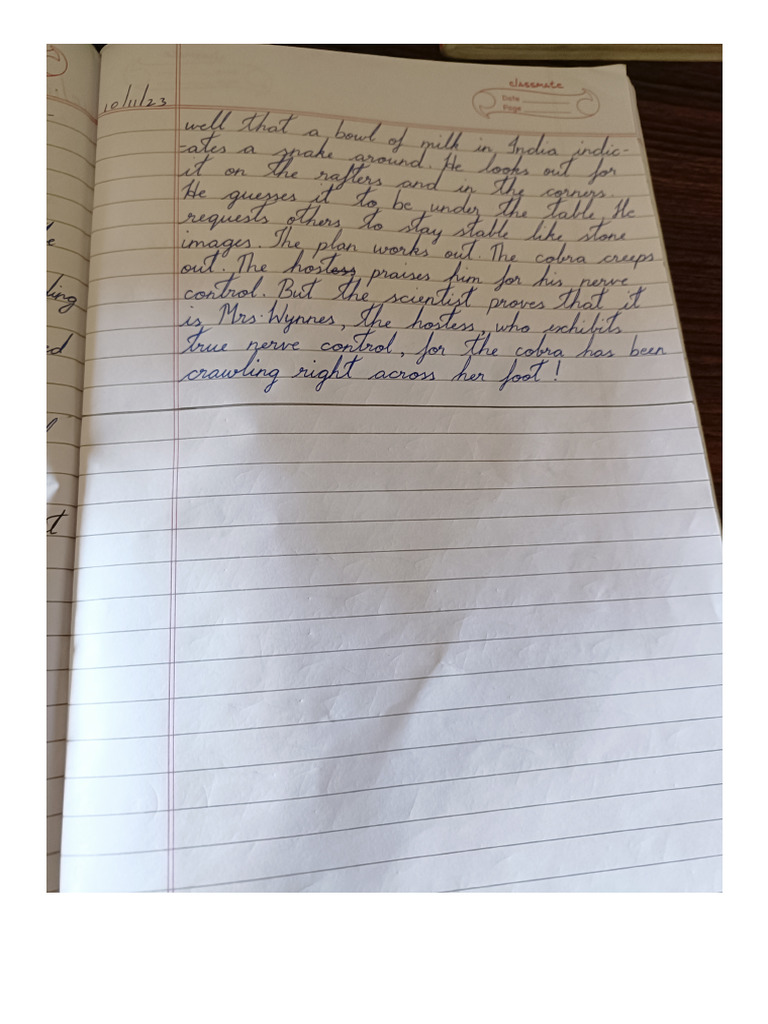 classmate
Date
Page
10/11/23
well that a bowl of milk in India indic-
=ates a snake around. He looks out for
it on the rafters and in the corners.
He guesses it to be under the table. He
requests others to stay stable like stone
images. The plan works out. The cobra creeps
out. The hostess praises him for his nerve
control. But the scientist proves that it
is Mrs. Wynnes, the hostess, who exhibits
true nerve control, for the cobra has been
crawling right across her foot!
ling